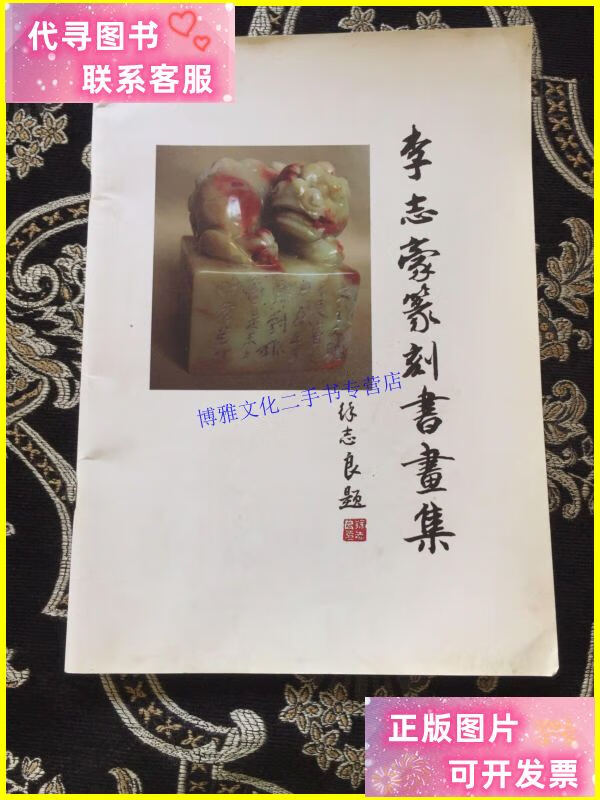 代寻图书
联系客服
李志豪篆刻書畫集
博雅文化二手书专营店
徐志良题
正版图片
可开发票